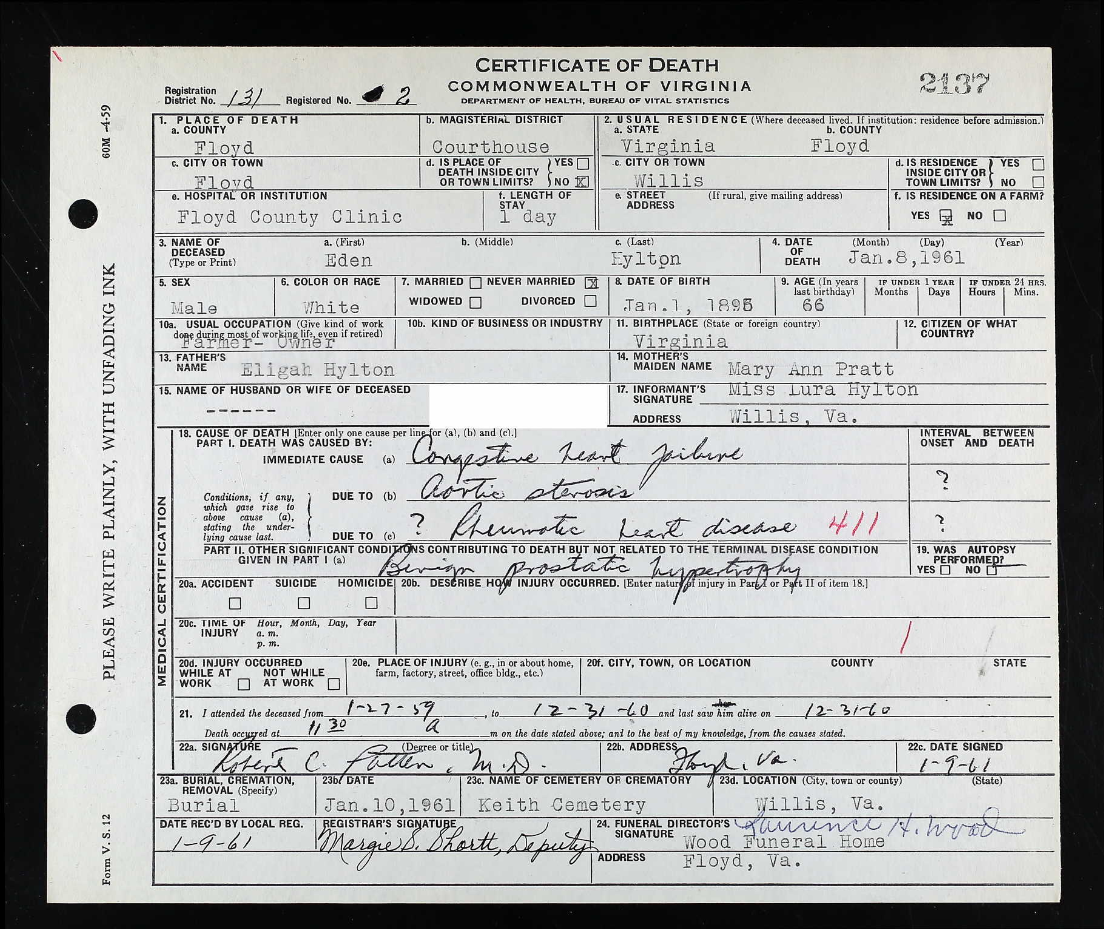 CERTIFICATE OF DEATH
COMMONWEALTH OF VIRGINIA
DEPARTMENT OF HEALTH, BUREAU OF VITAL STATISTICS
2137
Registration District No. 131 Registered No. 2
60M -4-59
PLEASE WRITE PLAINLY, WITH UNFADING INK
Form V. S. 12
1. PLACE OF DEATH
a. COUNTY
Floyd
b. MAGISTERIAL DISTRICT
Courthouse
2. USUAL RESIDENCE (Where deceased lived. If institution: residence before admission.)
a. STATE b. COUNTY
Virginia Floyd
c. CITY OR TOWN
Floyd
d. IS PLACE OF DEATH INSIDE CITY OR TOWN LIMITS? YES NO X
c. CITY OR TOWN
Willis
d. IS RESIDENCE INSIDE CITY OR TOWN LIMITS? YES NO
e. HOSPITAL OR INSTITUTION
Floyd County Clinic
f. LENGTH OF STAY
1 day
e. STREET ADDRESS (If rural, give mailing address)
f. IS RESIDENCE ON A FARM?
YES X NO
3. NAME OF DECEASED (Type or Print)
a. (First) b. (Middle) c. (Last)
Eden Hylton
4. DATE OF DEATH (Month) (Day) (Year)
Jan.8,1961
5. SEX
Male
6. COLOR OR RACE
White
7. MARRIED NEVER MARRIED X
WIDOWED DIVORCED
8. DATE OF BIRTH
Jan.1, 1895
9. AGE (In years last birthday)
66
IF UNDER 1 YEAR
Months Days
IF UNDER 24 HRS.
Hours Mins.
10a. USUAL OCCUPATION (Give kind of work done during most of working life, even if retired)
Farmer- Owner
10b. KIND OF BUSINESS OR INDUSTRY
11. BIRTHPLACE (State or foreign country)
Virginia
12. CITIZEN OF WHAT COUNTRY?
13. FATHER'S NAME Eligah Hylton
14. MOTHER'S MAIDEN NAME Mary Ann Pratt
15. NAME OF HUSBAND OR WIFE OF DECEASED
------
17. INFORMANT'S SIGNATURE Miss Lura Hylton
ADDRESS Willis, Va.
MEDICAL CERTIFICATION
18. CAUSE OF DEATH [Enter only one cause per line for (a), (b) and (c).]
INTERVAL BETWEEN ONSET AND DEATH
PART I. DEATH WAS CAUSED BY:
IMMEDIATE CAUSE (a) Congestive heart failure
Conditions, if any, which gave rise to above cause (a), stating the underlying cause last.
DUE TO (b) Aortic sterosis ?
DUE TO (c) ? Rheumatic heart disease 411 ?
PART II. OTHER SIGNIFICANT CONDITIONS CONTRIBUTING TO DEATH BUT NOT RELATED TO THE TERMINAL DISEASE CONDITION GIVEN IN PART I (a)
Benign prostatic hypertrophy
19. WAS AUTOPSY PERFORMED?
YES NO
20a. ACCIDENT SUICIDE HOMICIDE
20b. DESCRIBE HOW INJURY OCCURRED. [Enter nature of injury in Part I or Part II of item 18.]
20c. TIME OF INJURY Hour, Month, Day, Year
a. m.
p. m.
1
20d. INJURY OCCURRED
WHILE AT WORK NOT WHILE AT WORK
20e. PLACE OF INJURY (e. g., in or about home, farm, factory, street, office bldg., etc.)
20f. CITY, TOWN, OR LOCATION COUNTY STATE
21. I attended the deceased from 1-27-59, to 12-31-60 and last saw him alive on 12-31-60
Death occurred at 11 30 a m on the date stated above; and to the best of my knowledge, from the causes stated.
22a. SIGNATURE (Degree or title)
Robert C. Patten, M.D.
22b. ADDRESS
Floyd, Va.
22c. DATE SIGNED
1-9-61
23a. BURIAL, CREMATION, REMOVAL (Specify)
Burial
23b. DATE
Jan.10,1961
23c. NAME OF CEMETERY OF CREMATORY
Keith Cemetery
23d. LOCATION (City, town or county) (State)
Willis, Va.
DATE REC'D BY LOCAL REG.
1-9-61
REGISTRAR'S SIGNATURE
Margie S. Shortt, Deputy
24. FUNERAL DIRECTOR'S SIGNATURE Laurence H. Wood
Wood Funeral Home
ADDRESS Floyd, Va.